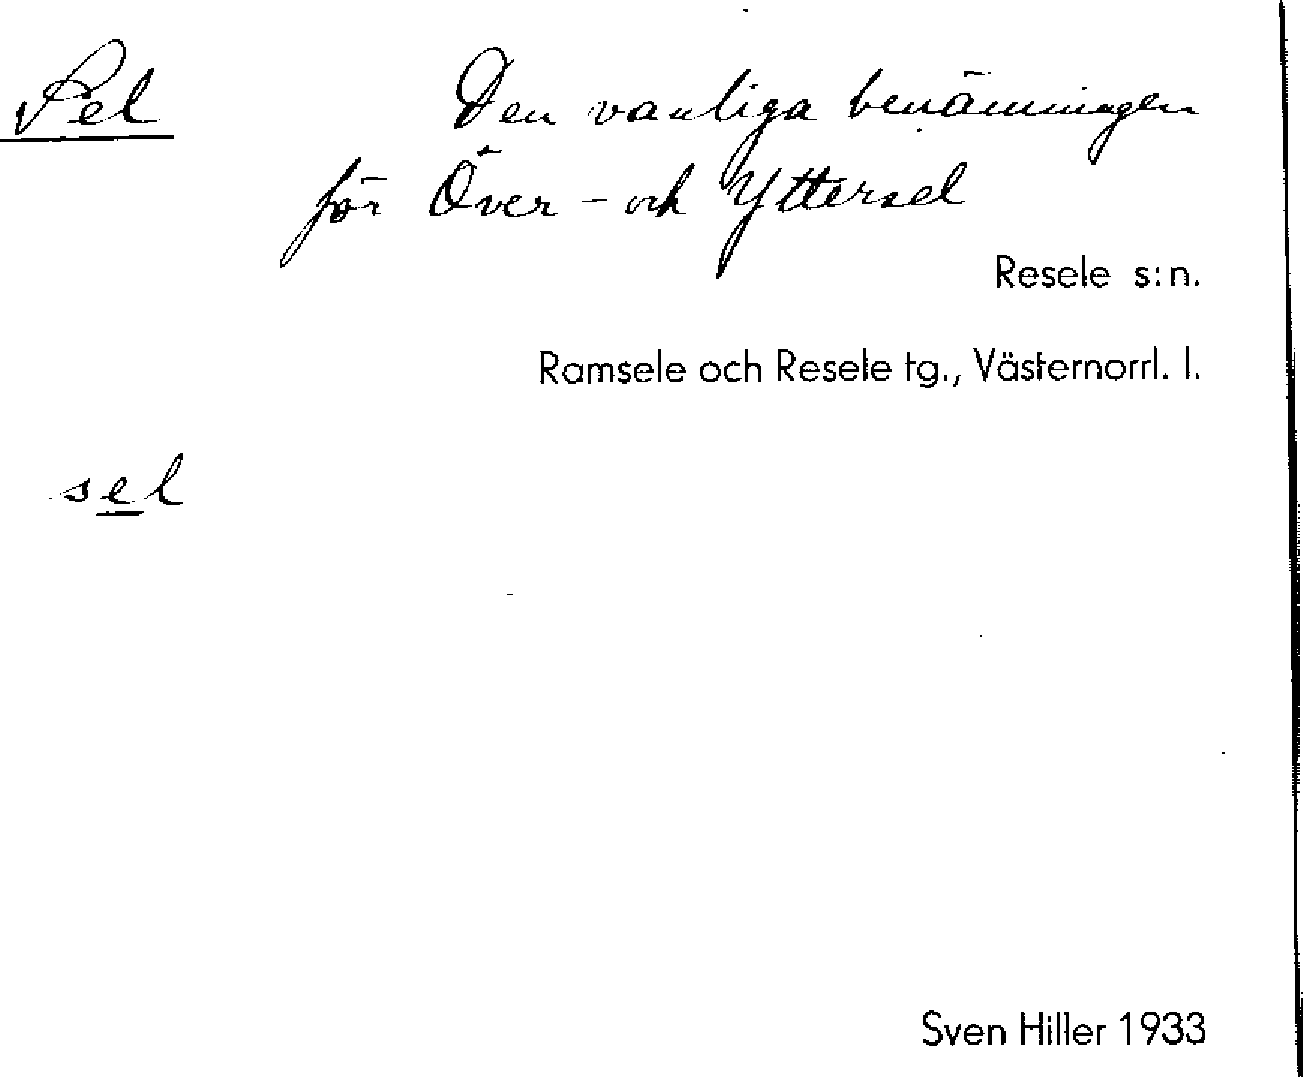 Sel Den vanliga benämningen
för Över- och Yttersel
Resele s:n.
Ramsele och Resele tg., Västernorrl. l.
sel
Sven Hiller 1933